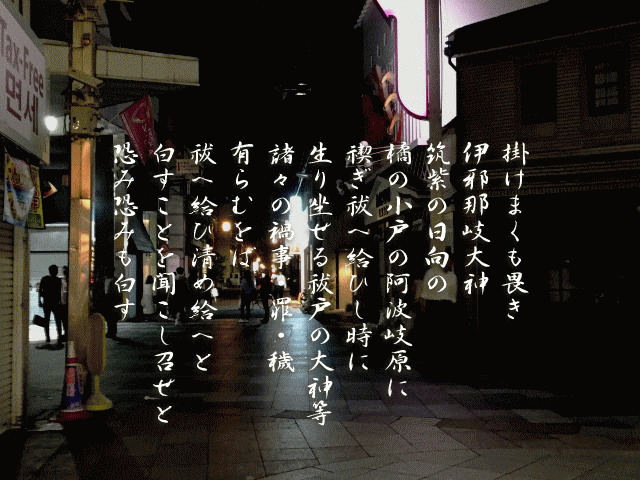 掛けまくも畏き
伊邪那岐大神
筑紫の日向の
橘の小戸の阿波岐原に
禊ぎ祓へ給ひし時に
生り坐せる祓戸の大神等
諸々の禍事・罪・穢
有らむをば
祓へ給ひ清め給へと
白すことを聞こし召せと
恐み恐みも白す
Tax-Free
면세